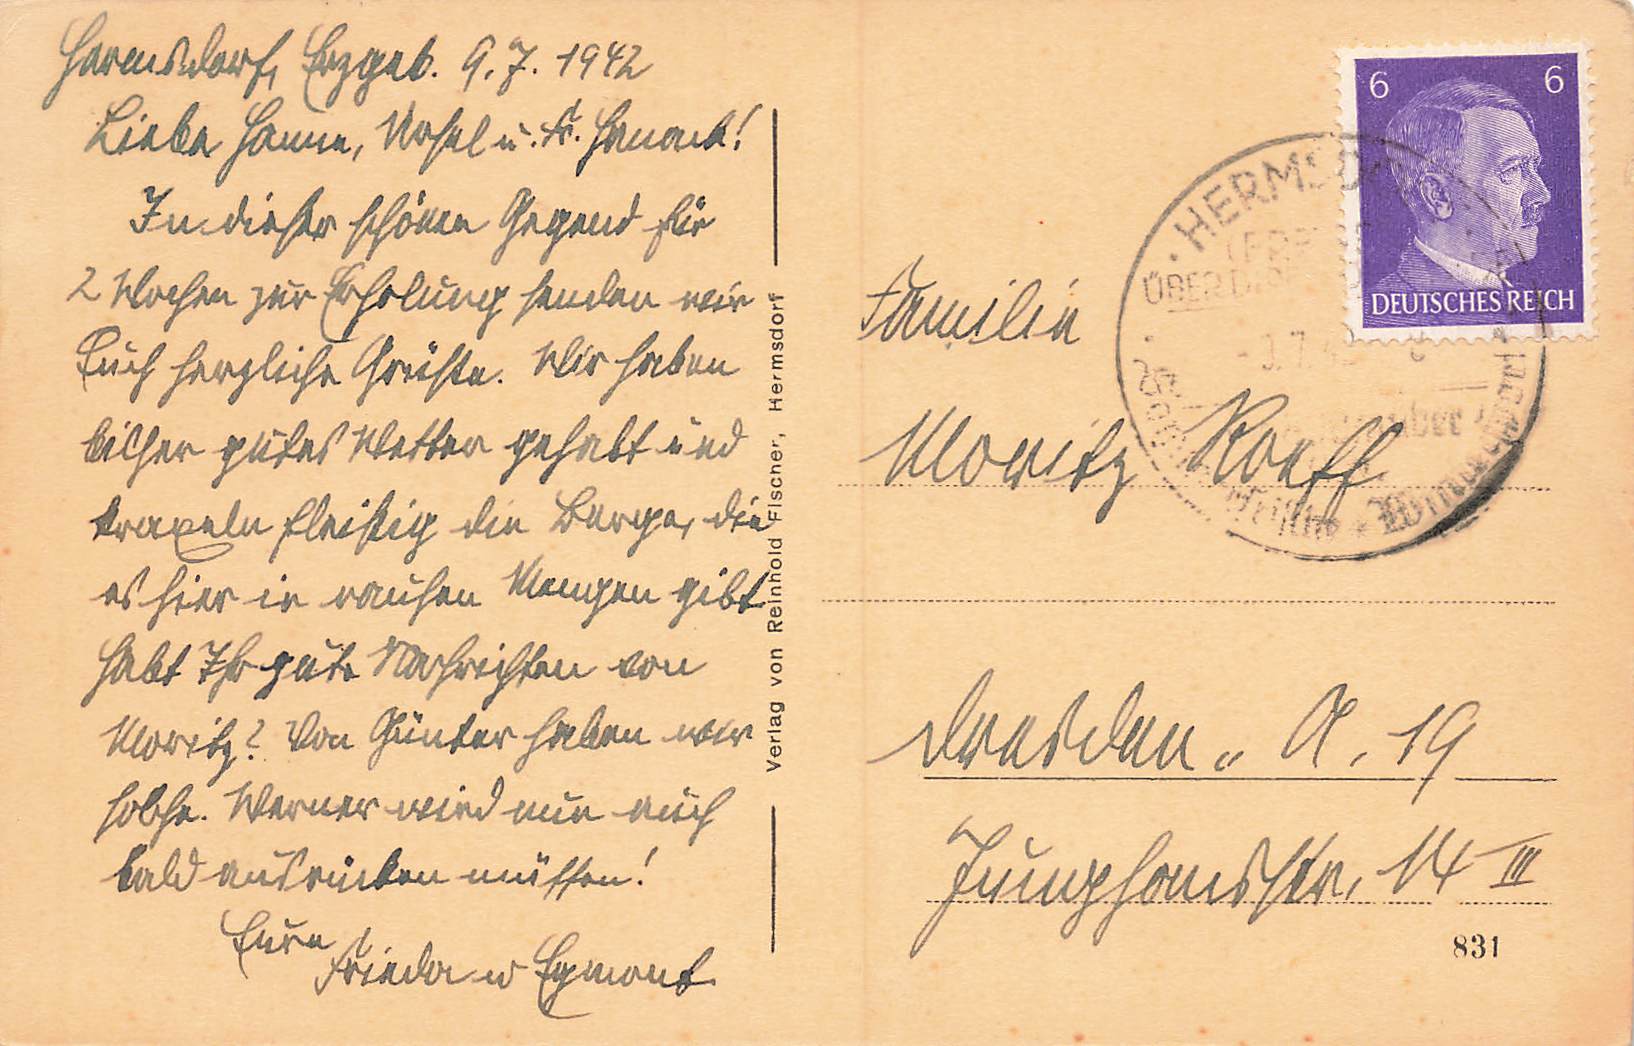 Hermsdorf, Erzgeb. 9.7.1942
Liebe Hanne, Ursel u. Fr.
In dieser schönen Gegend für
2 Wochen zur Erholung senden wir
Euch herzliche Grüße. Wir haben
bisher gutes Wetter gehabt und
kraxeln fleißig die Berge, die
es hier in rauhen Mengen gibt
habt Ihr gute Nachrichten von
Moritz? Von Günter haben wir
solche. Werner wird nun auch
bald ausrücken müssen!
Eure
Frieda u Egmont
Verlag von Reinhold Fischer, Hermsdorf
6 6
DEUTSCHES REICH
HERMSDO
ÜBER DI
7.42
Familie
Moritz Roeff
Dresden. A. 19
Junghansstr. 14 III
831